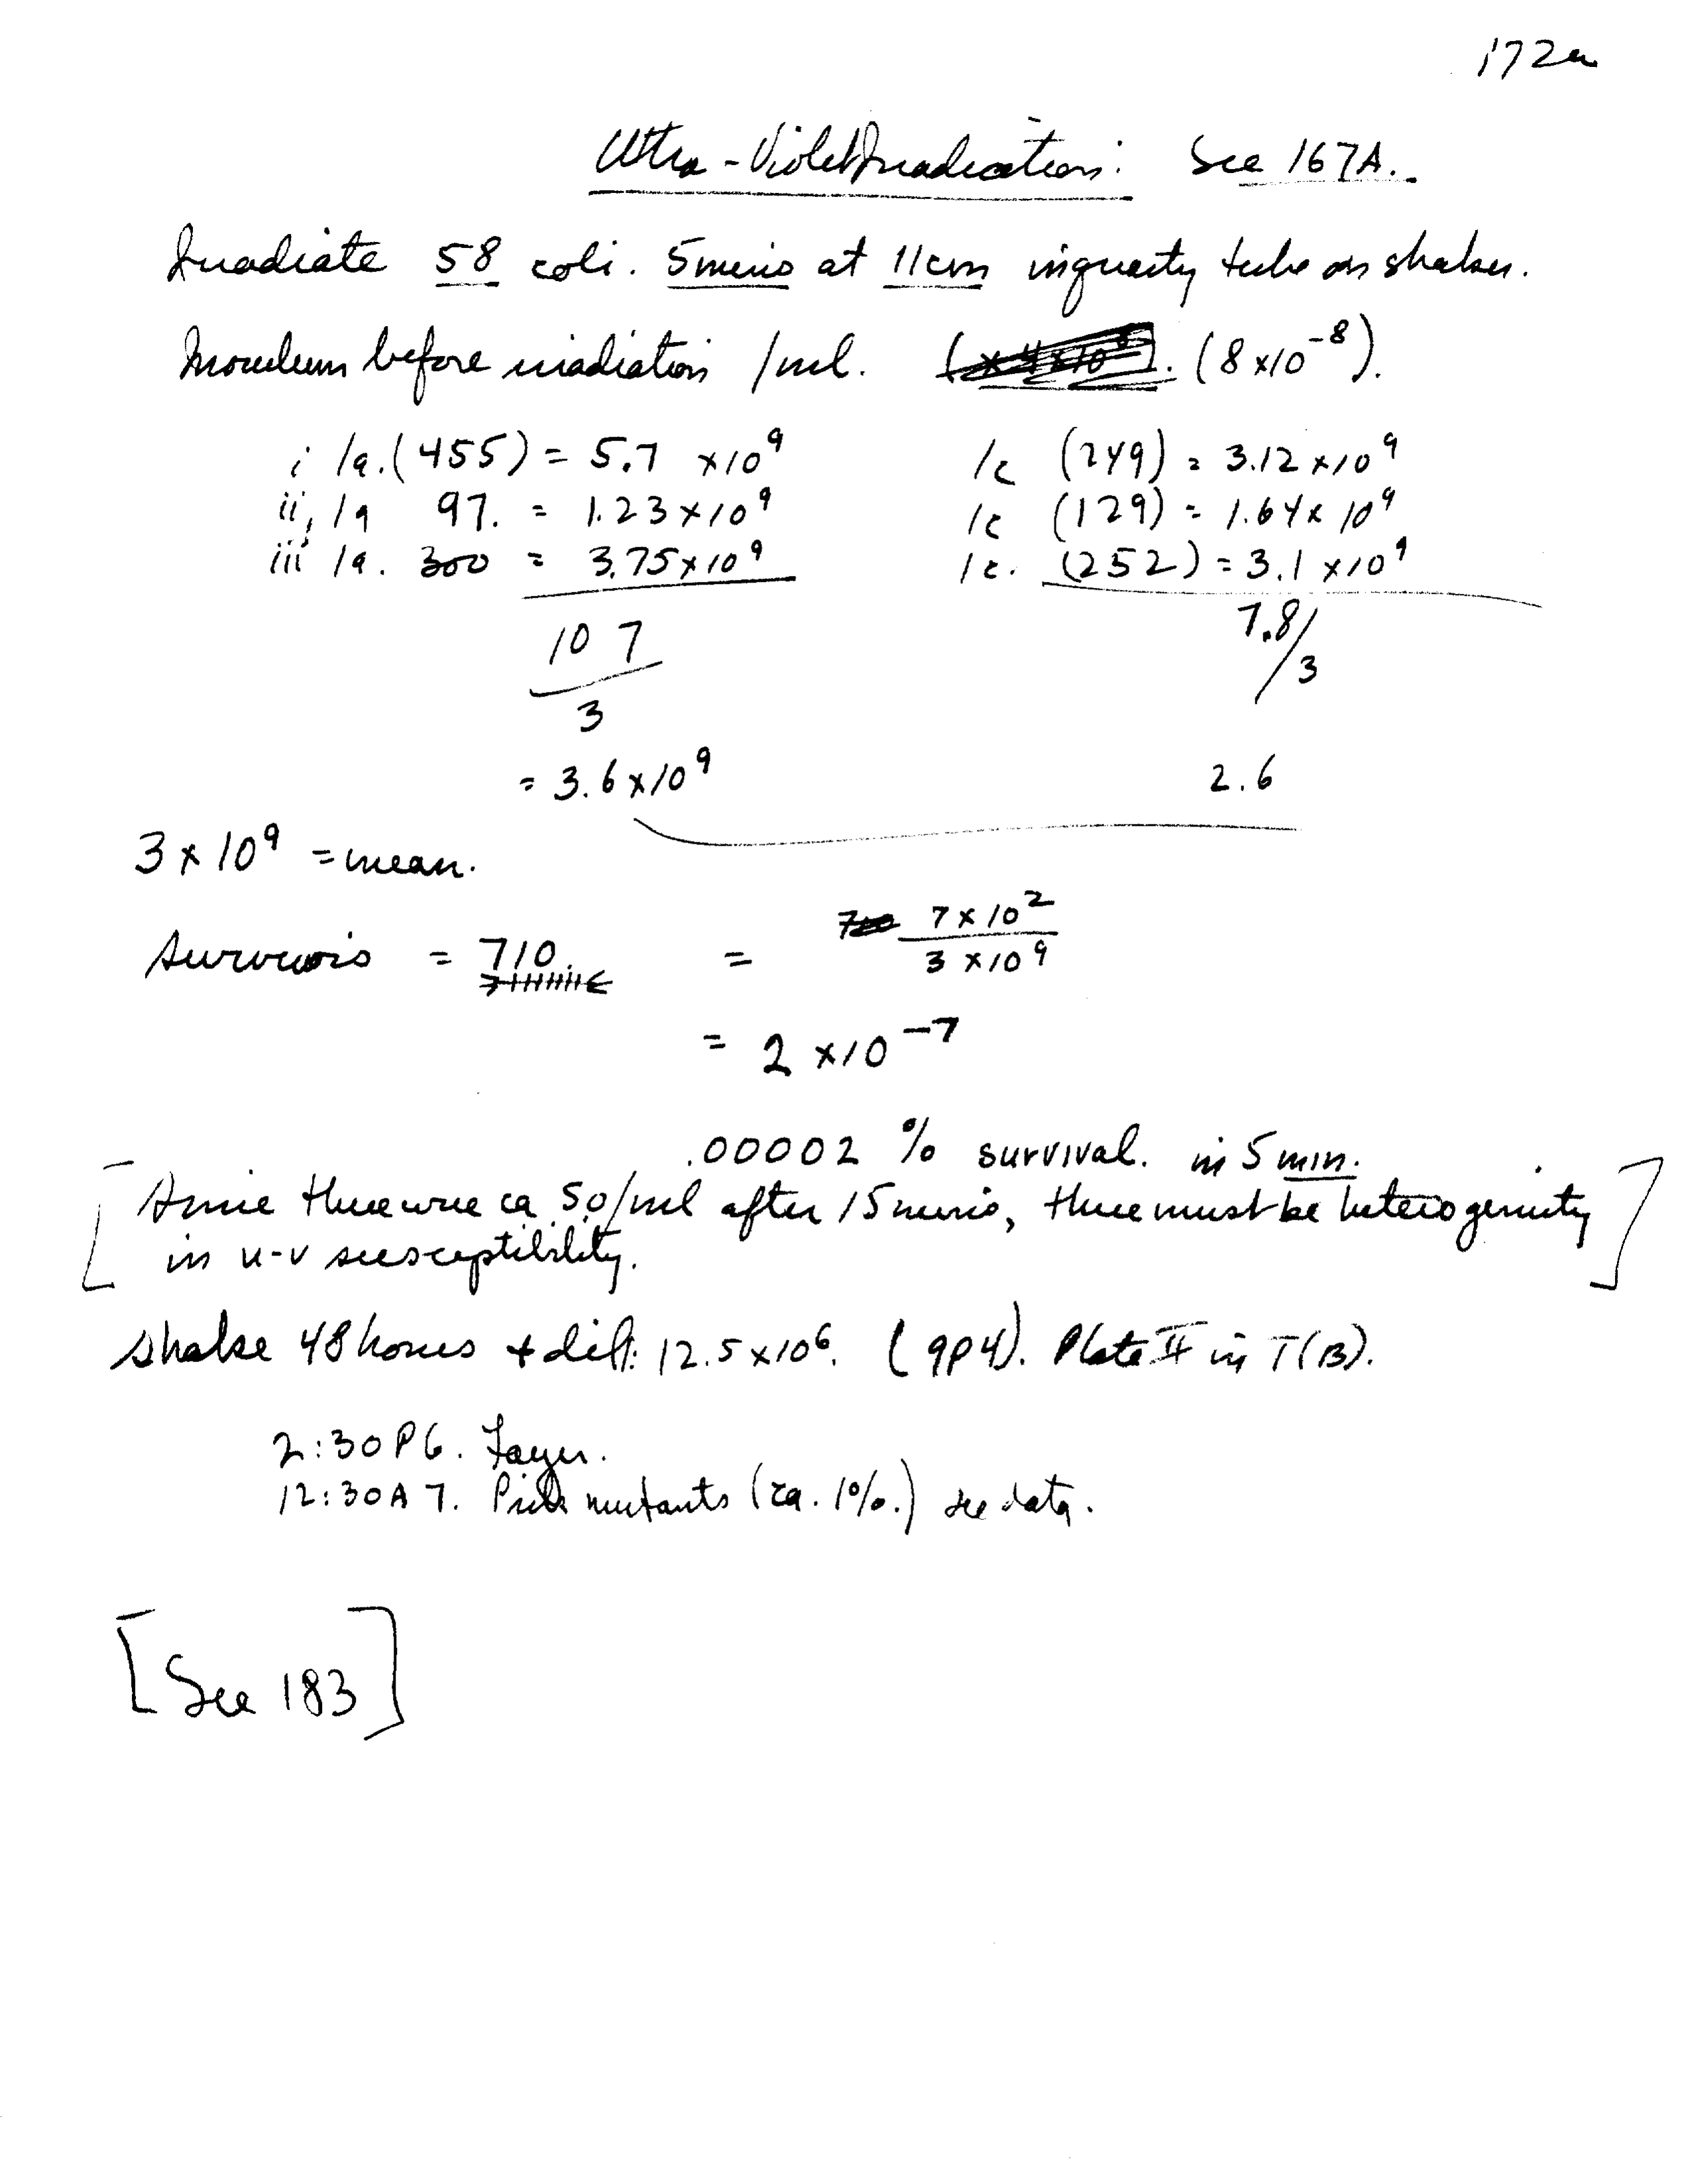 172a
Ultra-Violet Irradiation: See 167A.
Irradiate 58 coli. 5 mins at 11cm in quartz tube on shaker.
Inoculum before irradiation /ml. (8 x 10^-8).
i /a. (455) = 5.7 x 10^9 /c (249) = 3.12 x 10^9
ii, /a 97. = 1.23 x 10^9 /c (129) = 1.64 x 10^9
iii /a. 300 = 3.75 x 10^9 /c. (252) = 3.1 x 10^9
10 7 / 3 7.8/3
= 3.6 x 10^9 2.6
3 x 10^9 = mean.
Survivors = 710. = 7 x 10^2 / 3 x 10^9
= 2 x 10^-7
.00002 % survival. in 5 min.
[Since there were ca 50/ml after 15 mins, there must be heterogenity
in u-v susceptibility.]
Shake 48 hours + dil: 12.5 x 10^6. (9P4). Plate II in T(B).
2:30 P6. Layer.
12:30 A 7. Pick mutants (ca. 1%.) see data.
[See 183]